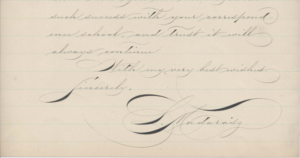 such success with your correspond
ence school, and trust it will
always continue
With my very best wishes
Sincerely,
L. Madarasz